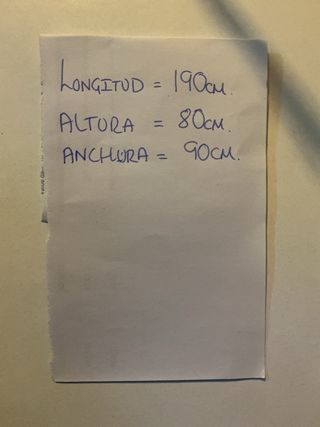 LONGITUD = 190CM.
ALTURA = 80CM.
ANCHURA = 90CM.